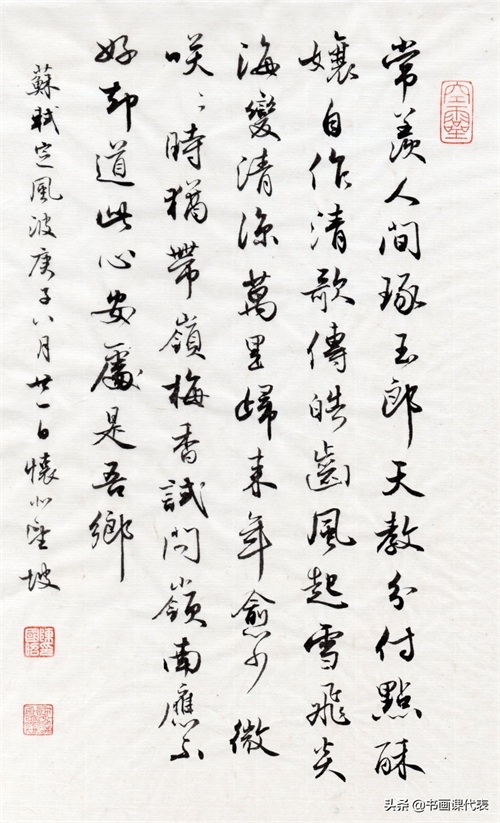 常羨人間琢玉郎天教分付點酥
孃自作清歌傳皓齒風起雪飛炎
海變清涼萬里歸来年愈少微
咲〻時猶帶嶺梅香試問嶺南應不
好却道此心安處是吾鄉
蘇軾定風波庚子八月廿一日懷坡
头条 @书画课代表